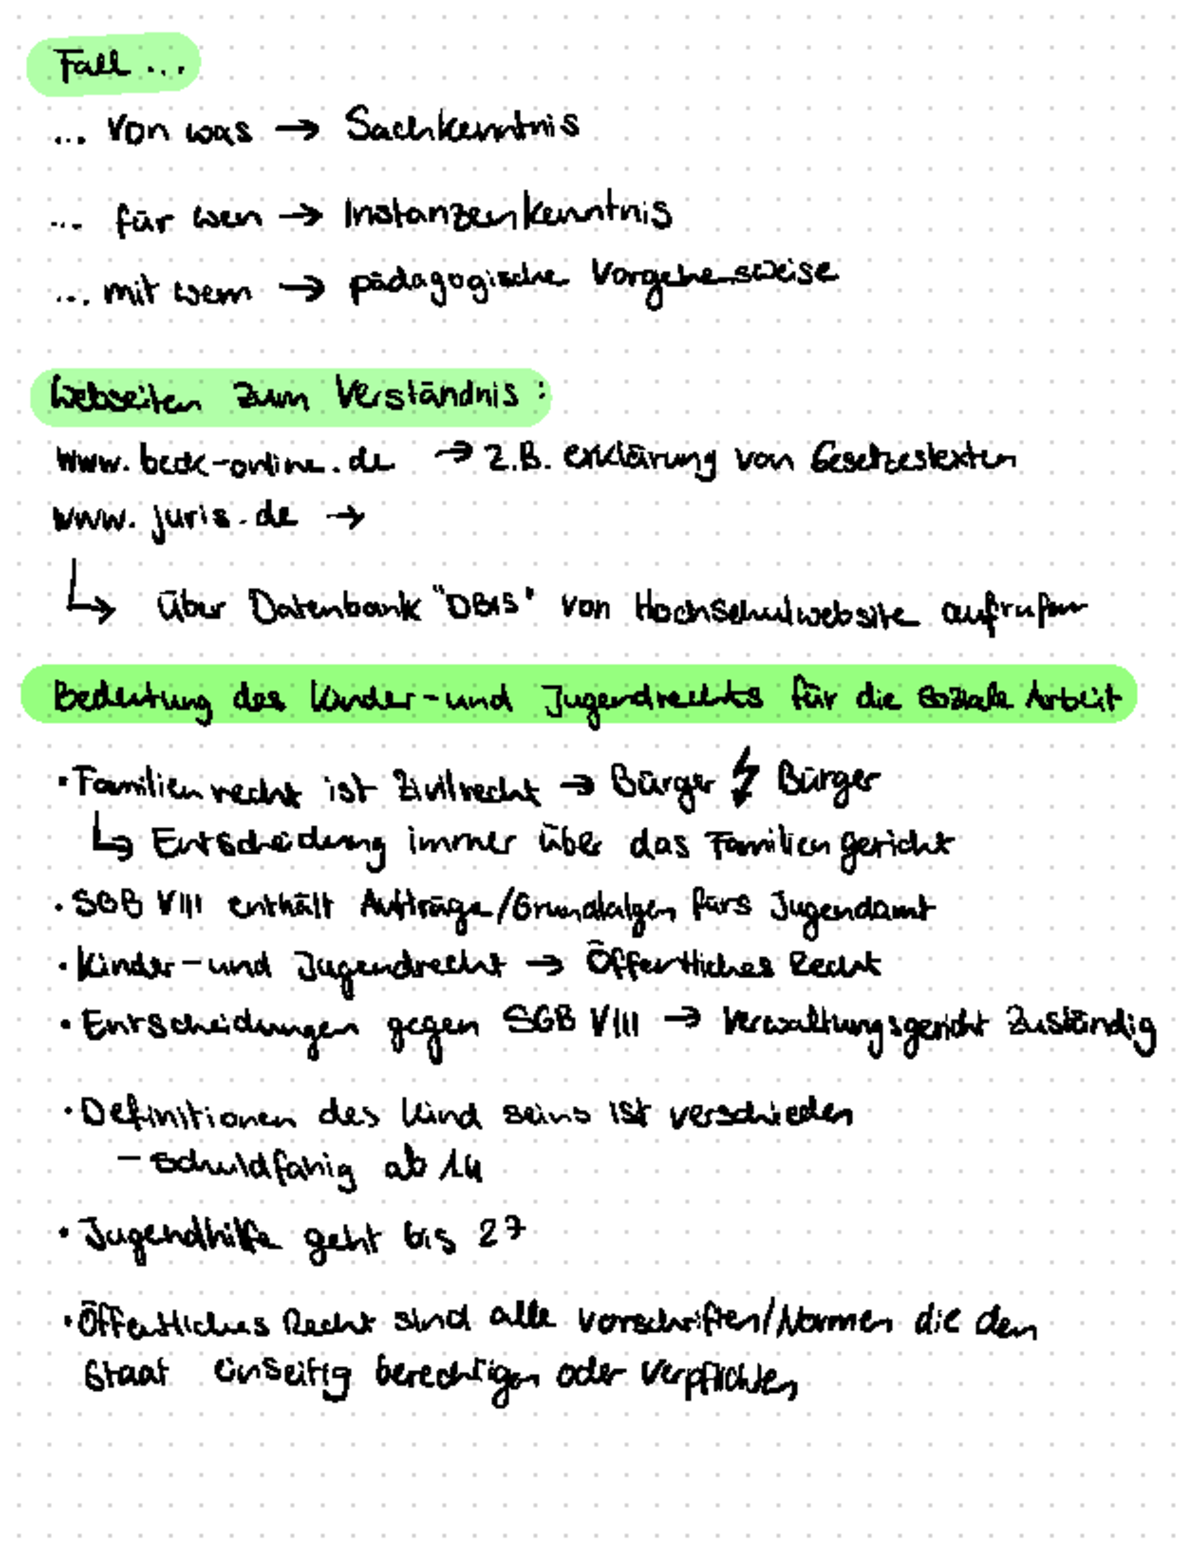 Fall ...
... Von was → Sachkenntnis
... für wen → Instanzenkenntnis
... mit wem → pädagogische Vorgehensweise
Webseiten zum Verständnis:
www.beck-online.de → z.B. erklärung von Gesetzestexten
www.juris.de →
↳ über Datenbank "DBIS" von Hochschulwebsite aufrufen
Bedeutung des Kinder-und Jugendrechts für die soziale Arbeit
• Familienrecht ist Zivilrecht → Bürger ↯ Bürger
↳ Entscheidung immer über das Familiengericht
• SGB VIII enthält Aufträge/Grundalgen fürs Jugendamt
• Kinder-und Jugendrecht → Öffentliches Recht
• Entscheidungen gegen SGB VIII → Verwaltungsgericht zuständig
• Definitionen des Kind seins ist verschieden
- schuldfähig ab 14
• Jugendhilfe geht bis 27
• Öffentliches Recht sind alle vorschriften/Normen die den
Staat einseitig berechtigen oder verpflichten